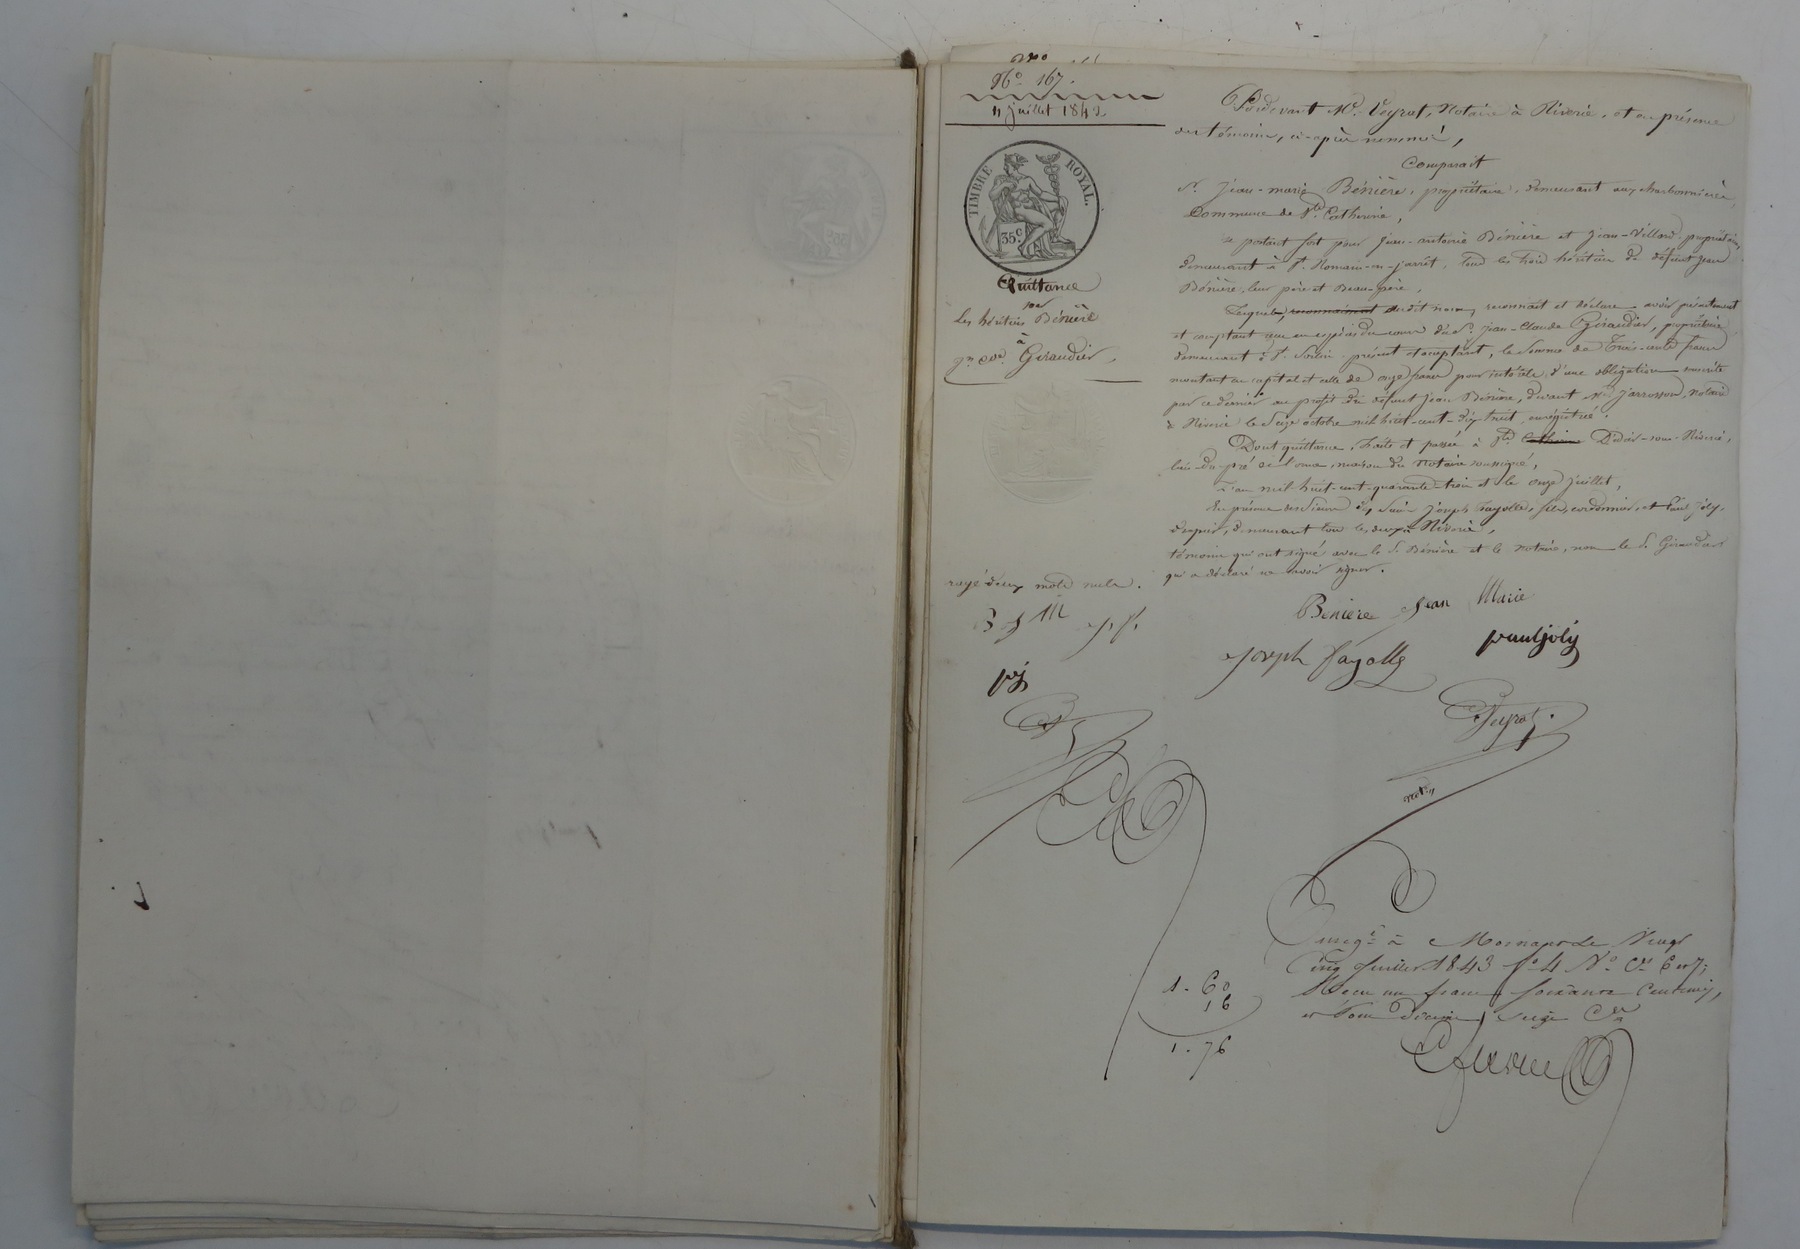 No 167.
11 juillet 1842
TIMBRE ROYAL.
35 c.
Quittance
par
les héritiers Bénière
à
Jn. Cde. Giraudier,
Pardevant Me. Veyrat, Notaire à Riverie, et en présence
des témoins, ci-après nommés,
Comparait
Sr. Jean-marie Bénière, propriétaire, demeurant aux charbonnières,
Commune de Ste. Catherine,
se portant fort pour Jean-antoine Bénière et Jean-Villard, propriétaires,
demeurant à St. Romain-en-jarrêt, tous les trois héritiers de défunt Jean
Bénière, leur père et Beau-père,
Lequel, reconnaissent audit nom, reconnait et déclare avoir présentement
et comptant reçu en espèces du cours de Sr. Jean-Claude Giraudier, propriétaire,
demeurant à St. Sorlin présent et acceptant, la Somme de Trois-cents francs
montant en capital et celle de onze francs pour intérêts, d'une obligation souscrite
par ce dernier au profit du défunt Jean Bénière, devant Me. Jarrosson, Notaire
à Riverie le Seize octobre mil huit-cent-dix-huit, enregistrée.
Dont quittance, Faite et passée à St. Catherine Didier-sous-Riverie,
lieu du pré de l'orme, maison du Notaire soussigné,
L'an mil huit-cent-quarante-trois et le onze juillet,
En présence des Sieurs Joseph Fayolle, fils, cordonnier, et Paul Joly,
demeurant tous les deux à Riverie,
témoins qui ont signé avec le S. Bénière et le Notaire, non le S. Giraudier
qui a déclaré ne savoir signer.
rayé deux mots nuls.
B J M J. f.
Benière Jean Marie
Joseph Fayolle
paul joly
pj
Veyrat
not.
Enregé. à Mornant le Vingt
Cinq Juillet 1843 fo 4 Vo. Ces 6 et 7;
Reçu un franc soixante Centimes,
et pour décime, seize Ces
1 - 60
16
1 - 76